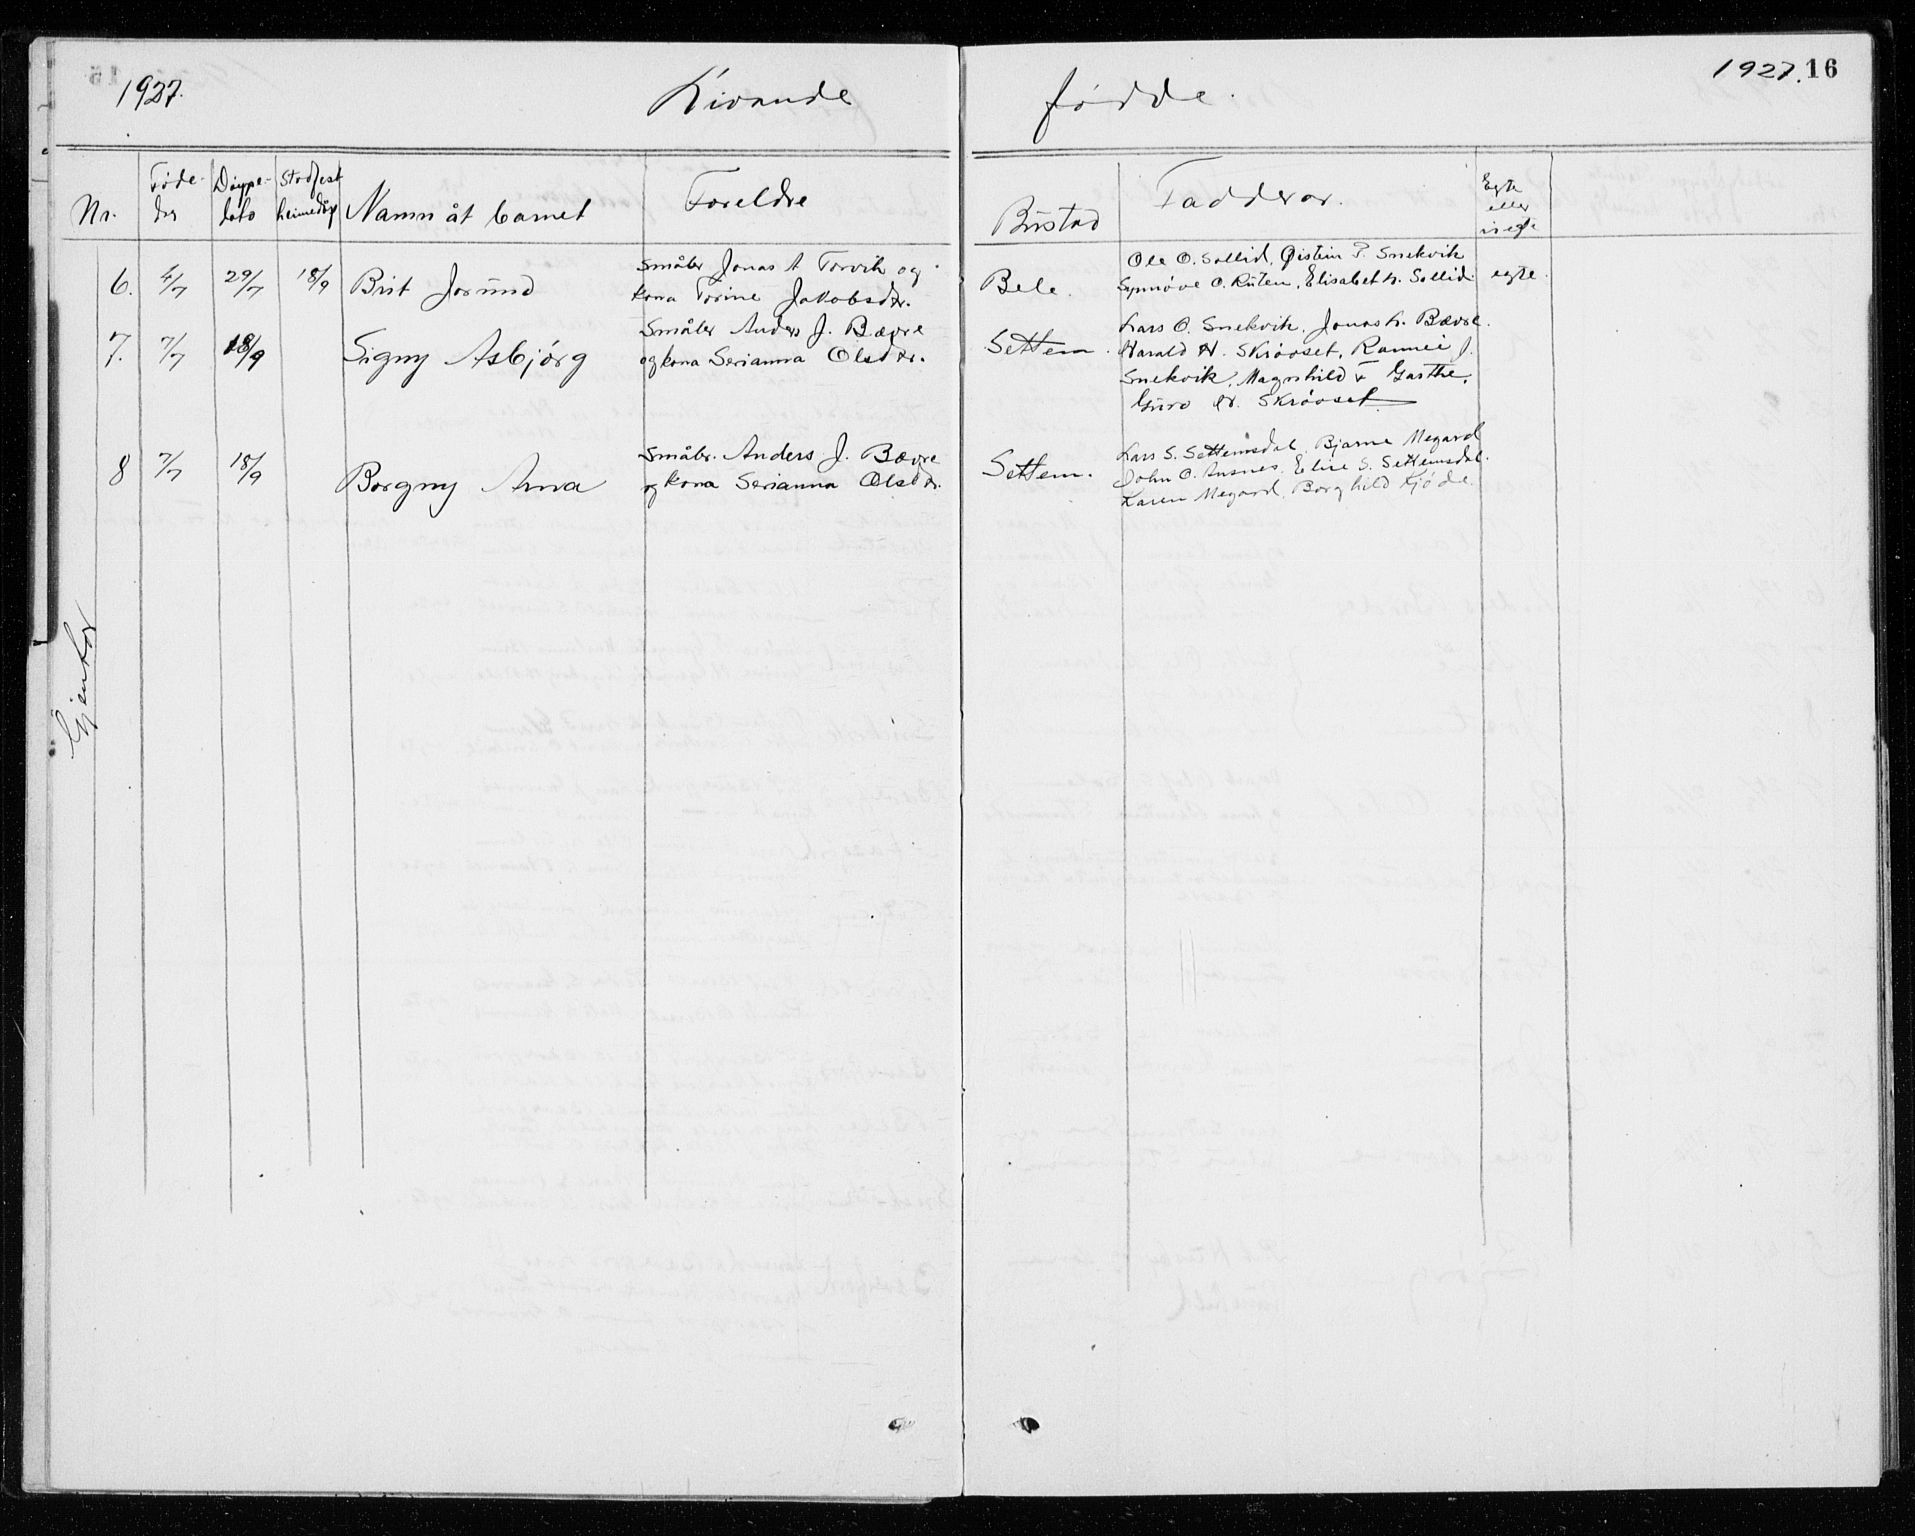 1927.
Livande
fødde.
1927. 16
Nr.
Føde-
Døype-
Stadfest
heimedøp
Namn åt barnet
Foreldre
Bustad
Fadderar.
Egte
eller
uegte
Gjentor
6. 4/7 29/7 18/9 Brit Jorund
Småbr Jonas A Torvik og
kona Torine Jakobsdtr.
Bele.
Ole O. Sollid, Øistein P. Snekvik
Synnøve O. Ruten, Elisabet h. Sollid.
egte.
7. 7/7 18/9 Signy Asbjørg
Småbr Anders J. Bævre
og kona Serianna Olsdtr.
Settem.
Lars O. Snekvik, Jonas h. Bævre.
Harald H. Skrøvset, Rannei J.
Snekvik, Magnhild T Garthe,
Guro H. Skrøvset.
8 7/7 18/9 Borgny Arna
Småbr. Anders J. Bævre
og kona Serianna Olsdtr.
Settem.
Lars S. Settemsdal, Bjarne Megard
John O. Ansnes, Elise S. Settemsdal.
Karen Megard, Borghild Kjøde.